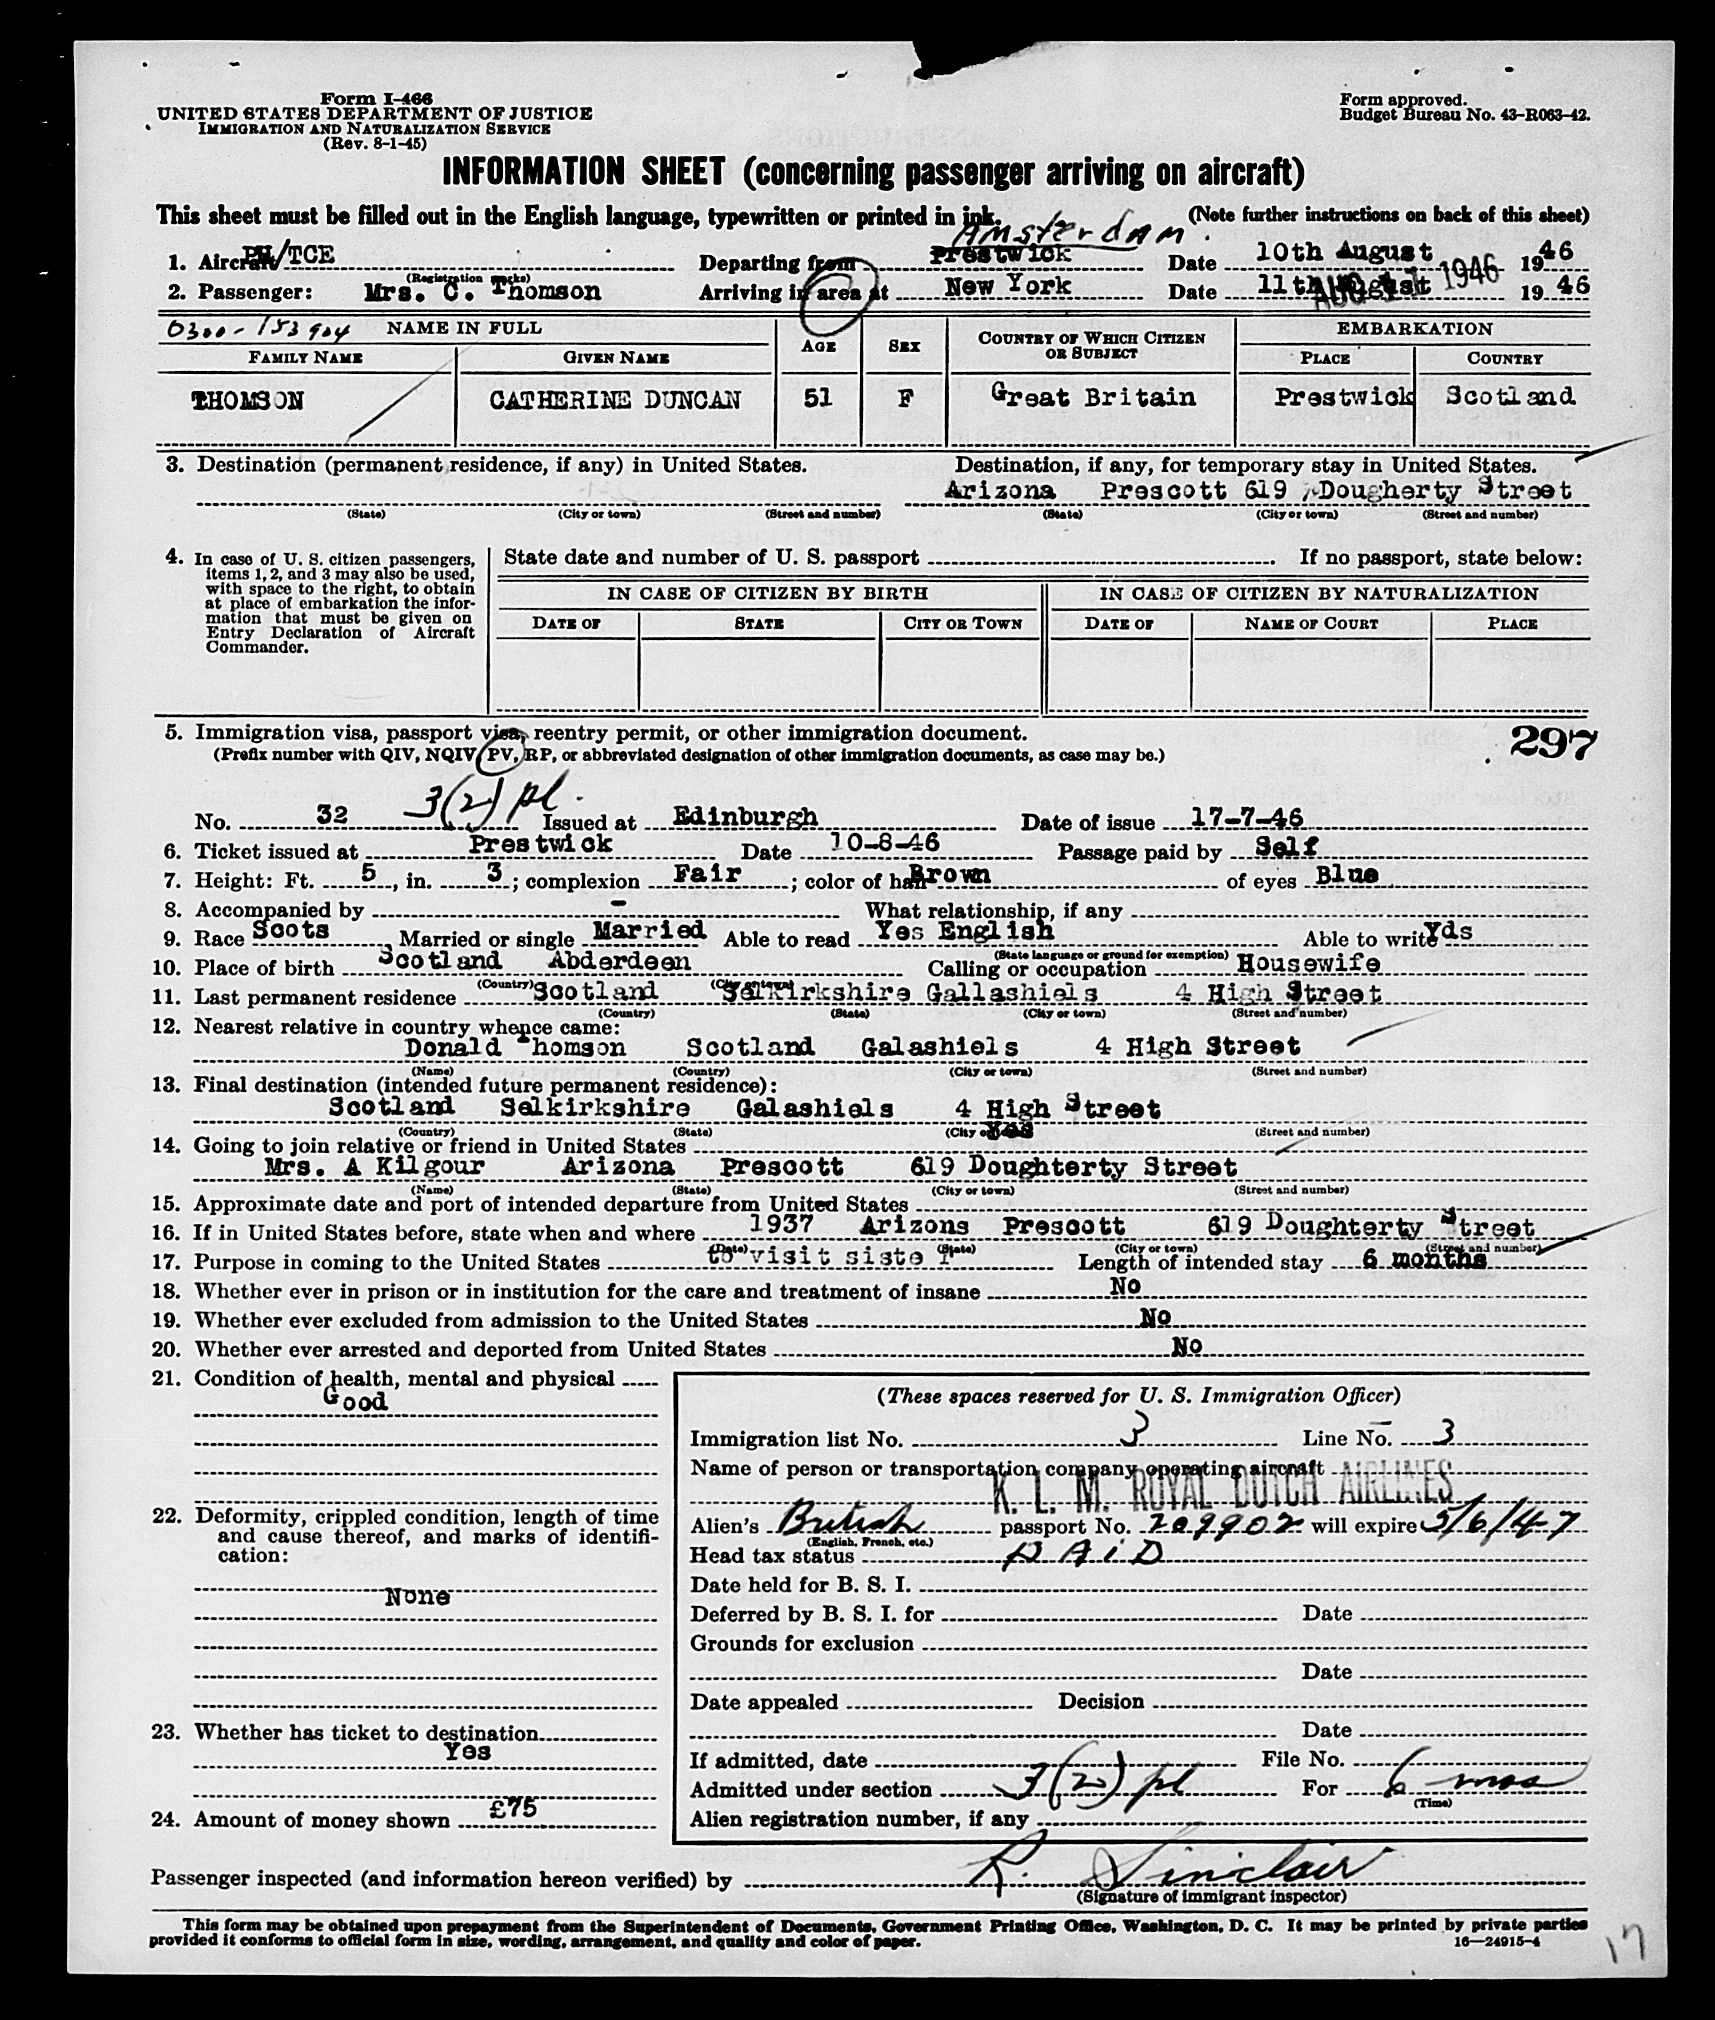 Form I-466
UNITED STATES DEPARTMENT OF JUSTICE
IMMIGRATION AND NATURALIZATION SERVICE
(Rev. 8-1-45)
Form approved.
Budget Bureau No. 43-R063-42.
INFORMATION SHEET (concerning passenger arriving on aircraft)
This sheet must be filled out in the English language, typewritten or printed in ink. (Note further instructions on back of this sheet)
Amsterdam.
1. Aircraft PH/TCE Departing from Prestwick Date 10th August 1946
(Registration marks)
2. Passenger: Mrs. C. Thomson Arriving in area at New York Date 11th August 1946
AUG 11 1946
0300-153904 NAME IN FULL AGE SEX COUNTRY OF WHICH CITIZEN OR SUBJECT EMBARKATION
FAMILY NAME GIVEN NAME PLACE COUNTRY
THOMSON CATHERINE DUNCAN 51 F Great Britain Prestwick Scotland
3. Destination (permanent residence, if any) in United States. Destination, if any, for temporary stay in United States.
Arizona Prescott 619 Dougherty Street
(State) (City or town) (Street and number) (State) (City or town) (Street and number)
4. In case of U. S. citizen passengers, items 1, 2, and 3 may also be used, with space to the right, to obtain at place of embarkation the information that must be given on Entry Declaration of Aircraft Commander.
State date and number of U. S. passport If no passport, state below:
IN CASE OF CITIZEN BY BIRTH IN CASE OF CITIZEN BY NATURALIZATION
DATE OF STATE CITY OR TOWN DATE OF NAME OF COURT PLACE
5. Immigration visa, passport visa, reentry permit, or other immigration document.
(Prefix number with QIV, NQIV, PV, RP, or abbreviated designation of other immigration documents, as case may be.)
297
No. 32 3(2) pl. Issued at Edinburgh Date of issue 17-7-46
6. Ticket issued at Prestwick Date 10-8-46 Passage paid by Self
7. Height: Ft. 5, in. 3; complexion Fair; color of hair Brown of eyes Blue
8. Accompanied by - What relationship, if any
9. Race Scots, Married or single Married Able to read Yes English Able to write Yds
(State language or ground for exemption)
10. Place of birth Scotland Abderdeen Calling or occupation Housewife
(Country) (City or town)
11. Last permanent residence Scotland Selkirkshire Gallashiels 4 High Street
(Country) (State) (City or town) (Street and number)
12. Nearest relative in country whence came:
Donald Thomson Scotland Galashiels 4 High Street
(Name) (Country) (City or town) (Street and number)
13. Final destination (intended future permanent residence):
Scotland Selkirkshire Galashiels 4 High Street
(Country) (State) (City or town) (Street and number)
14. Going to join relative or friend in United States Yes
Mrs. A Kilgour Arizona Prescott 619 Doughterty Street
(Name) (State) (City or town) (Street and number)
15. Approximate date and port of intended departure from United States
16. If in United States before, state when and where 1937 Arizons Prescott 619 Doughterty Street
(Date) (State) (City or town) (Street and number)
17. Purpose in coming to the United States to visit siste r Length of intended stay 6 months
18. Whether ever in prison or in institution for the care and treatment of insane No
19. Whether ever excluded from admission to the United States No
20. Whether ever arrested and deported from United States No
21. Condition of health, mental and physical
Good
22. Deformity, crippled condition, length of time and cause thereof, and marks of identification:
None
23. Whether has ticket to destination
Yes
24. Amount of money shown £75
(These spaces reserved for U. S. Immigration Officer)
Immigration list No. 3 Line No. 3
Name of person or transportation company operating aircraft
K. L. M. ROYAL DUTCH AIRLINES
Alien's British passport No. 209902 will expire 5/6/47
(English, French, etc.)
Head tax status PAID
Date held for B. S. I.
Deferred by B. S. I. for Date
Grounds for exclusion
Date
Date appealed Decision
Date
If admitted, date File No.
Admitted under section 3(2) pl For 6 mos
(Time)
Alien registration number, if any
Passenger inspected (and information hereon verified) by R. Sinclair
(Signature of immigrant inspector)
This form may be obtained upon prepayment from the Superintendent of Documents, Government Printing Office, Washington, D. C. It may be printed by private parties
provided it conforms to official form in size, wording, arrangement, and quality and color of paper.
16—24915-4
17